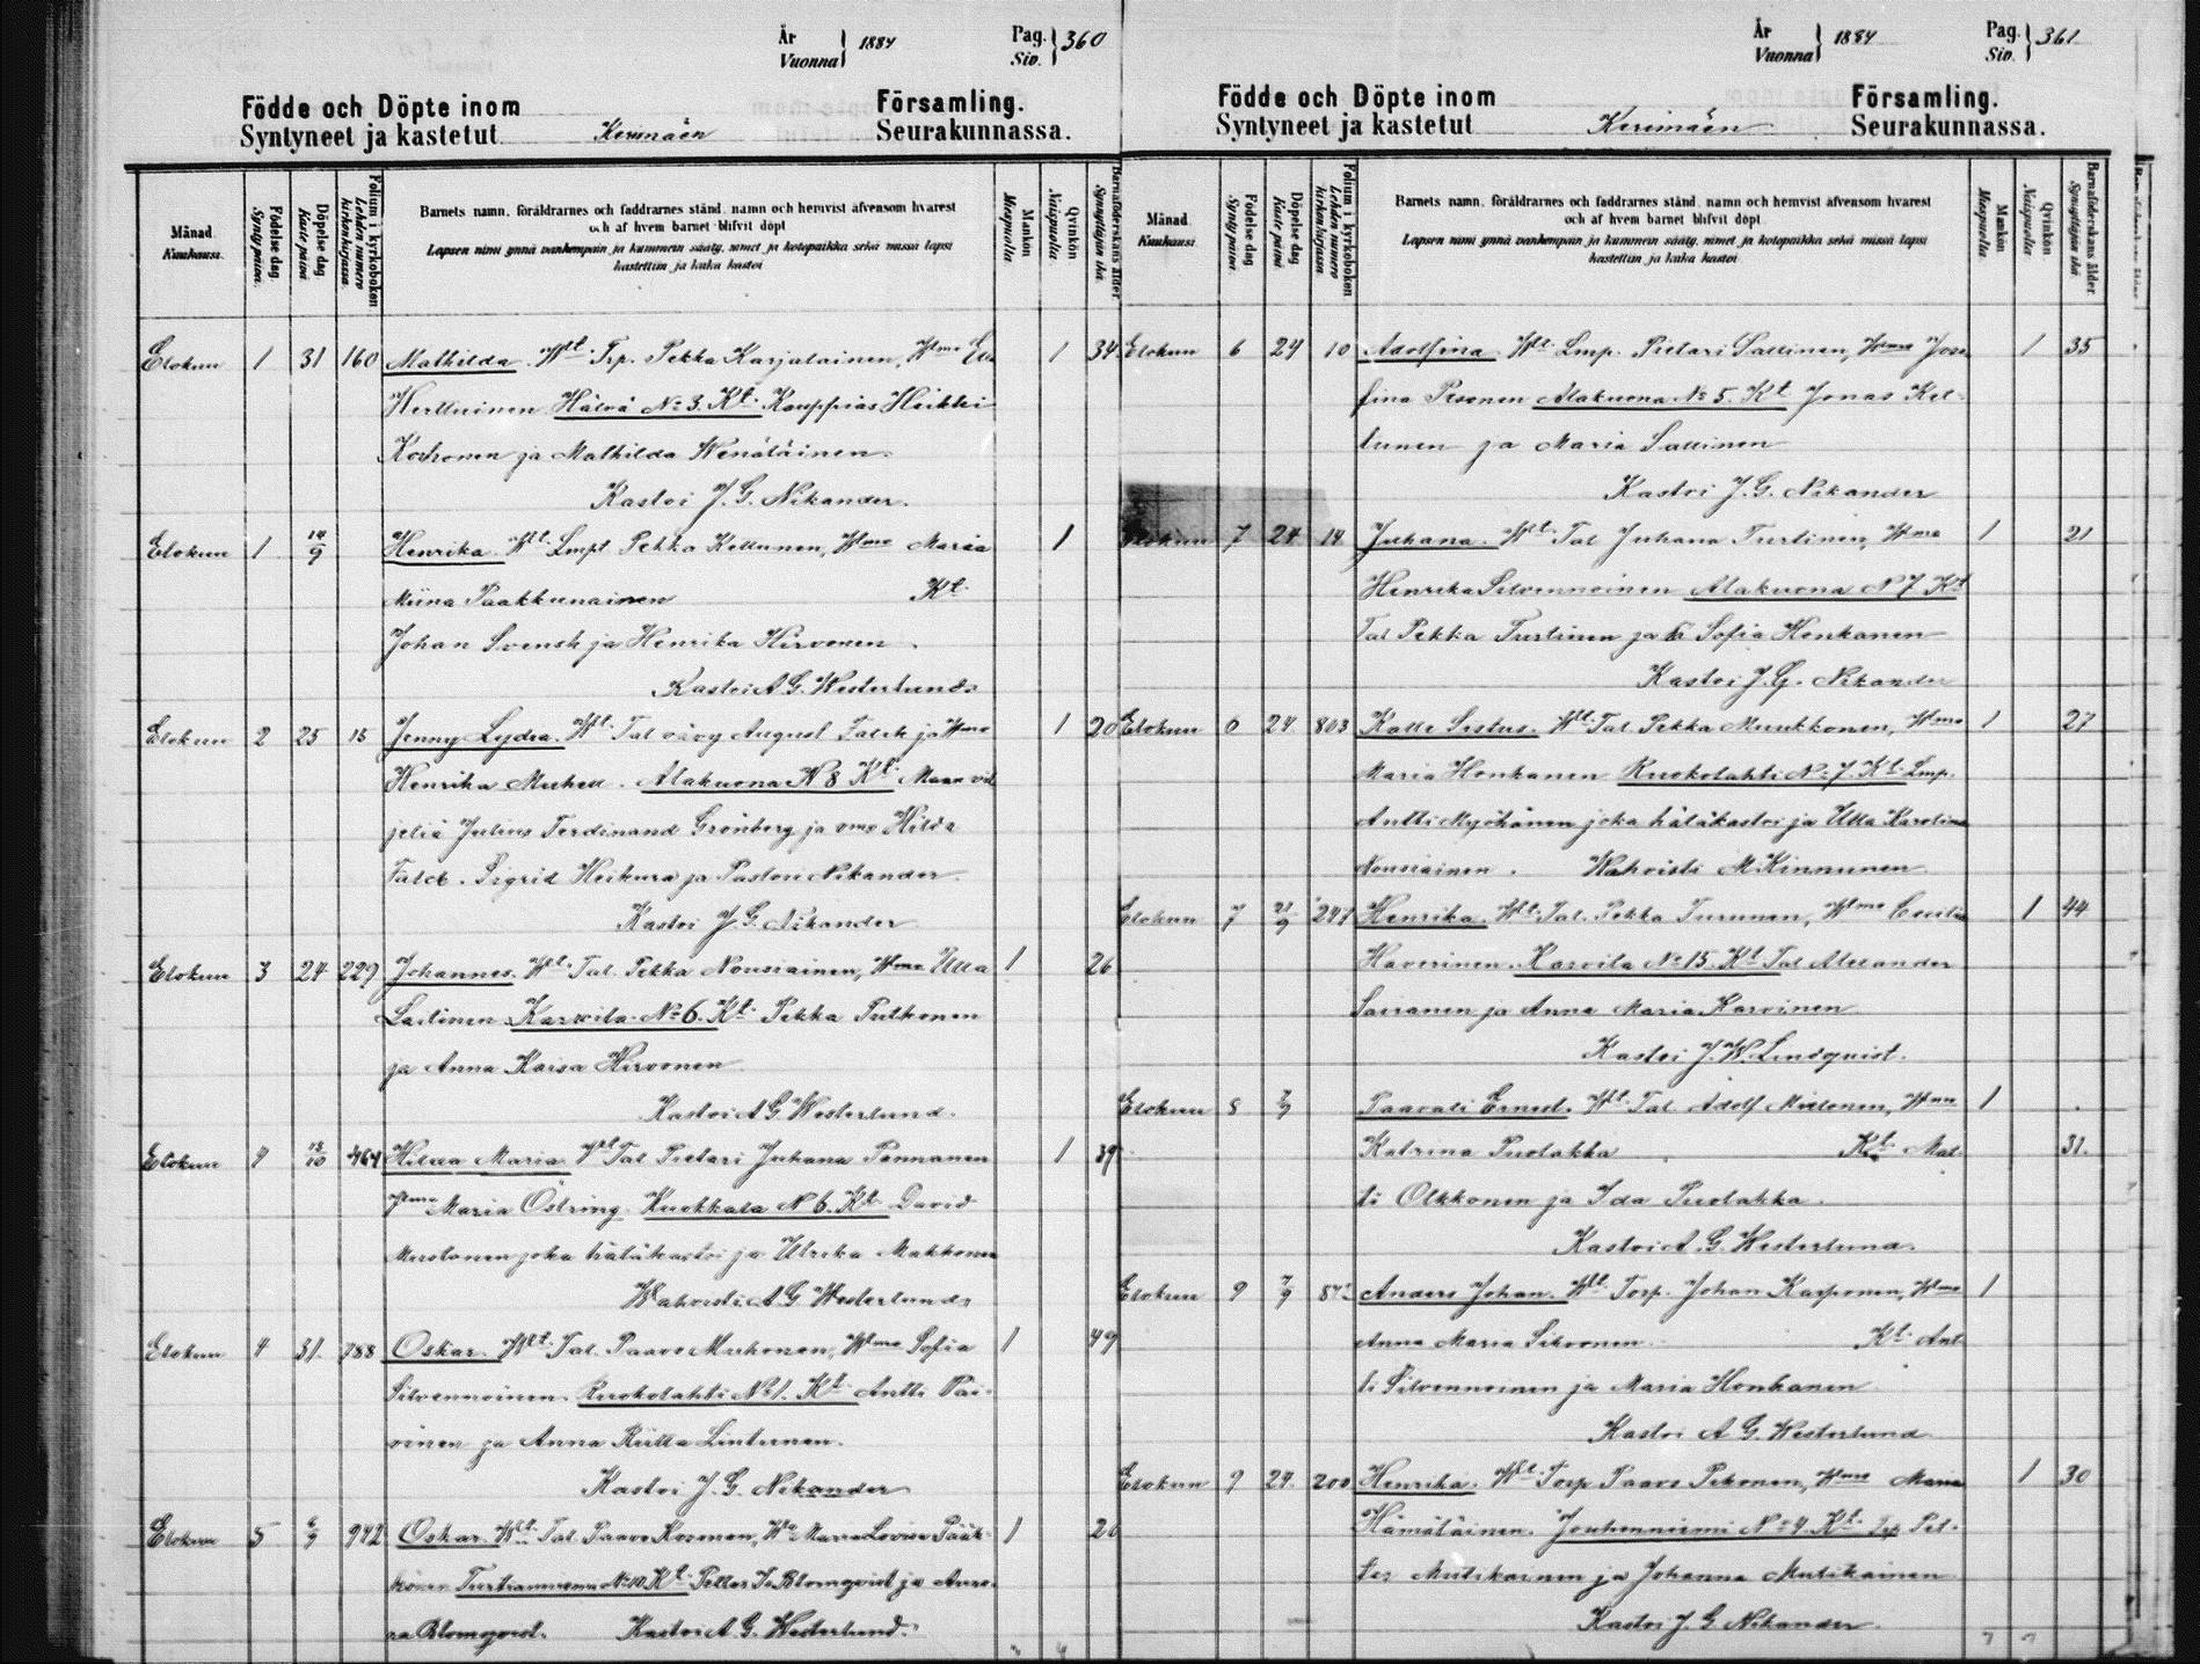 År
Vuonna 1884
Pag.
Siv. 360
Födde och Döpte inom Församling.
Syntyneet ja kastetut Kerimäen Seurakunnassa.
Månad
Kuukausi.
Födelse dag
Synty päivä.
Döpelse dag
Kaste päivä.
Folium i kyrkoboken
Lehden numero kirkonkirjassa.
Barnets namn, föräldrarnes och faddrarnes stånd, namn och hemvist äfvensom hvarest
och af hvem barnet blifvit döpt
Lapsen nimi ynnä vanhempain ja kummein sääty, nimet ja kotopaikka sekä missä lapsi
kastettiin ja kuka kastoi
Mankön
Miespuolta
Qvinkön
Naispuolta
Barnaföderskans ålder
Synnyttäjän ikä.
Elokuu 1 31 160 Mathilda. Wht. Trp. Pekka Karjalainen, Wmo 1 34
Hälvä No 3. Kt. Kauppias Heikki
Korhonen ja Mathilda Wenäläinen.
Kastoi J. G. Nikander.
Elokuu 1 14/9 Henrika. Wht. Lmpt Pekka Kettunen, Wmo Maria 1
Miina Paakkunainen Kt.
Johan Svensk ja Henrika Hirvonen.
Kastoi A G. Westerlund
Elokuu 2 25 15 Jenny Lydia. Wht. Tal vävy August Falck ja Wmo 1 20
Henrika Muheu. Alakuona N 8 Kt. Maan vil
jeliä Julius Ferdinand Grönberg ja vmo Hilda
Falck. Sigrid Heikura ja Pastori Nikander.
Kastoi J G. Nikander
Elokuu 3 24 229 Johannes. Wht. Tal. Pekka Nousiainen, Wmo Ulla 1 26
Laitinen Karvila No 6. Kt. Pekka Putkonen
ja Anna Kaisa Hirvonen
Kastoi A G. Westerlund.
Elokuu 4 13/10 464 Hilda Maria. Wht Tal Pietari Juhana Pennanen 1 39
Wmo Maria Östring. Kuokkala N 6. Kt. David
Mustonen joka hätäkastoi ja Ulrika Makkonen
Wahvisti A G Westerlund
Elokuu 4 31. 788 Oskar. Wht. Tal. Paavo Muhonen, Wmo Sofia 1 49
Silvennoinen. Ruokolahti No 1. Kt. Antti Päi-
vinen ja Anna Riitta Lintunen.
Kastoi J. G. Nikander
Elokuu 5 6/9 942 Oskar. Wht. Tal Paavo Kosonen, Wa Maria Lovisa Pääk- 1 26
könen No 10. Kt. Petter J. Blomqvist ja Anna
Blomqvist. Kastoi A. G. Westerlund.
År
Vuonna 1884
Pag.
Siv. 361
Födde och Döpte inom Församling.
Syntyneet ja kastetut Kerimäen Seurakunnassa.
Månad
Kuukausi
Födelse dag
Synty päivä
Döpelse dag
Kaste päivä
Folium i kyrkoboken
Lehden numero kirkonkirjassa
Barnets namn, föräldrarnes och faddrarnes stånd, namn och hemvist äfvensom hvarest
och af hvem barnet blifvit döpt
Lapsen nimi ynnä vanhempain ja kummein sääty, nimet ja kotopaikka sekä missä lapsi
kastettiin ja kuka kastoi
Mankön
Miespuolta
Qvinkön
Naispuolta
Barnaföderskans ålder
Synnyttäjän ikä
Elokuu 6 24 10 Adolfina. Wht. Lmp. Pietari Sallinen, Wmo Jose 1 35
fina Pesonen Alakuona No 5. Kt. Jonas Ket-
tunen ja Maria Sallinen
Kastoi J. G. Nikander
Elokuu 7 24 14 Juhana. Wht. Tal Juhana Turtinen, Wmo 1 21
Henrika Silvennoinen Alakuona N 7 Kt
Tal Pekka Turtinen ja Sofia Honkanen
Kastoi J. G. Nikander
Elokuu 6 24 803 Kalle Sistus. Wht. Tal Pekka Muukkonen, Wmo 1 27
Maria Honkanen Ruokolahti No 7. Kt. Lmp.
Antti Myöhänen joka hätäkastoi ja Ulla Karolina
Nousiainen. Wahvisti M. Kinnunen
Elokuu 7 21/9 247 Henrika. Wht. Tal. Pekka Turunen, Wmo Cecilia 1 44
Haverinen. Karvila No 15. Kt Tal Alexander
Sairanen ja Anna Maria Karvinen
Kastoi J. W. Lindqvist.
Elokuu 8 7/9 Paavali Ernest. Wht. Tal Adolf Miettonen, Wmo 1
Katrina Puolakka Kt. Mat- 31.
ti Olkkonen ja Ida Puolakka.
Kastoi A. G. Westerlund.
Elokuu 9 7/9 Anders Johan. Wht. Torp. Johan Karponen, Wmo 1
Anna Maria Silvonen. Kt. Ant
ti Silvennoinen ja Maria Honkanen
Kastoi A G. Westerlund
Elokuu 9 24. 200 Henrika. Wht. Torp Paavo Pekonen, Wmo Maria 1 30
Hämäläinen. Jouhenniemi No 4. Kt. Pet-
ter Mutikainen ja Johanna Mutikainen
Kastoi J. G Nikander